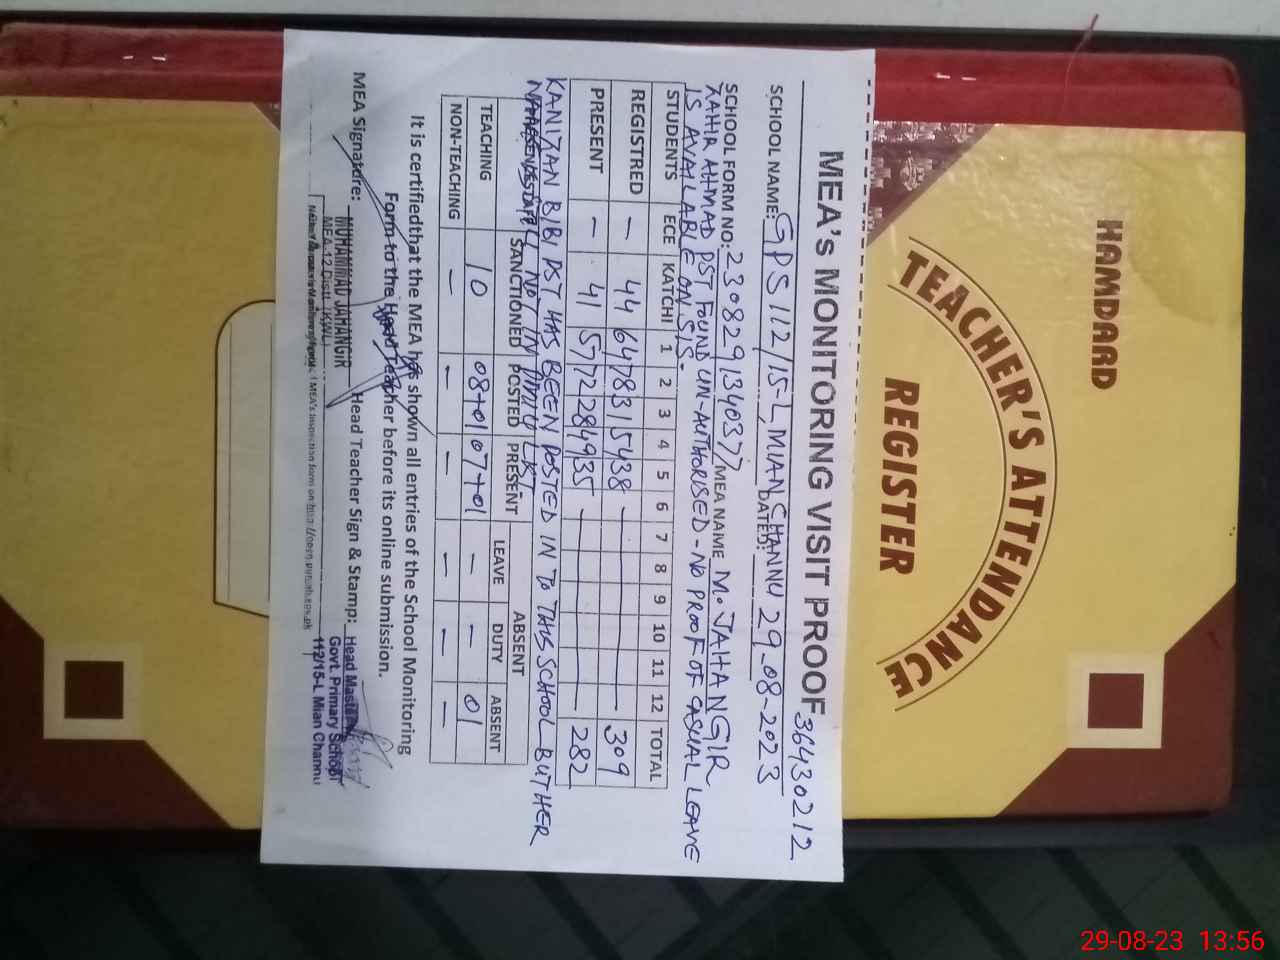 HAMDARD
TEACHER'S ATTENDANCE
REGISTER
MEA's MONITORING VISIT PROOF
36430212
SCHOOL NAME: GPS 112/15-L MIAN CHANNU DATED: 29-08-2023
SCHOOL FORM NO: 230829134037 MEA NAME M. JAHANGIR
ZAHIR AHMAD PST FOUND UN-AUTHORISED - NO PROOF OF CASUAL LEAVE
IS AVAILABLE ON SIS.
STUDENTS ECE KATCHI 1 2 3 4 5 6 7 8 9 10 11 12 TOTAL
REGISTRED — 44 64 78 31 54 38 — 309
PRESENT — 41 57 72 28 49 35 — 282
KANIZAN BIBI PST HAS BEEN POSTED IN TO THIS SCHOOL BUT HER
SANCTIONED POSTED PRESENT ABSENT
LEAVE DUTY ABSENT
TEACHING 10 08+01 07+01 — — 01
NON-TEACHING — — — — — —
It is certifiedthat the MEA has shown all entries of the School Monitoring
Form to the Head Teacher before its online submission.
MEA Signature: Head Teacher Sign & Stamp:
MUHAMMAD JAHANGIR
MEA-12 Distt. KWL
MEA's Inspection form on http://open.punjab.gov.pk
Head Master
Govt. Primary School
112/15-L Mian Channu
29-08-23 13:56